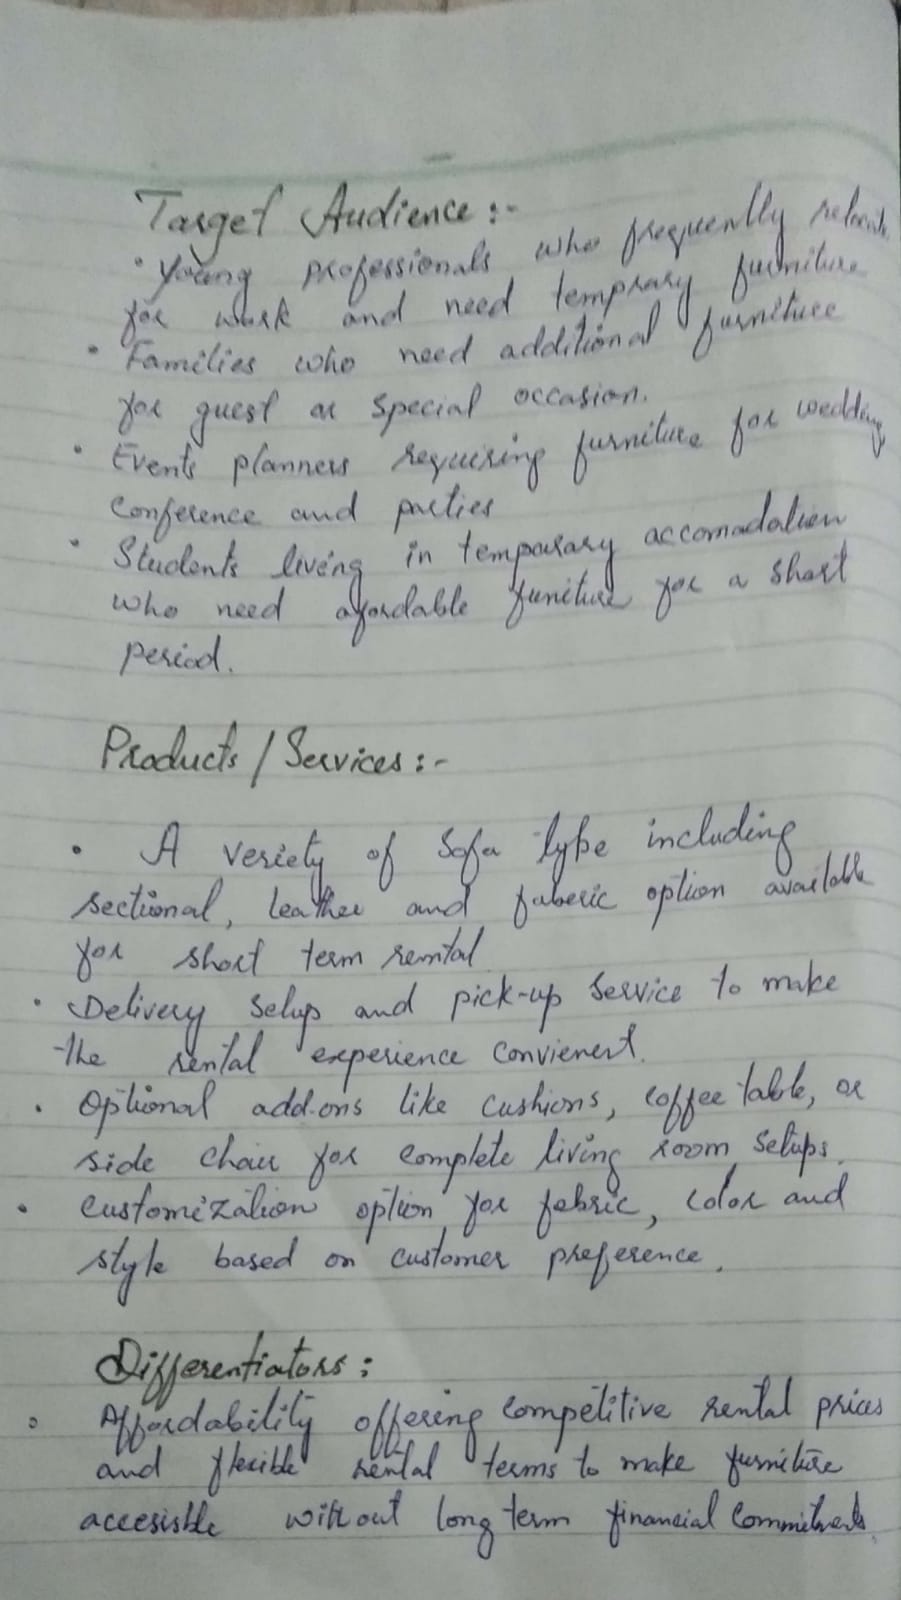 Target Audience :-
• Young professionals who frequently relocate
for work and need temprary furniture
• Families who need additional furniture
for guest or special occasion.
• Events planners requiring furniture for wedding,
conference and parties
• Students living in temporary accomadation
who need afordable funiture for a short
period.
Products / Services :-
• A veriety of Sofa type including
sectional, leather and faberic option available
for short term rental
• Delivery setup and pick-up service to make
the rental experience convienert.
• Optional add-ons like cushions, coffee table, or
side chair for complete living room setups.
• Customization option for fabric, color and
style based on customer preference.
Differentiators :
• Affordability offering competitive rental prices
and flexible rental terms to make furniture
accesisble without long term financial commitments.